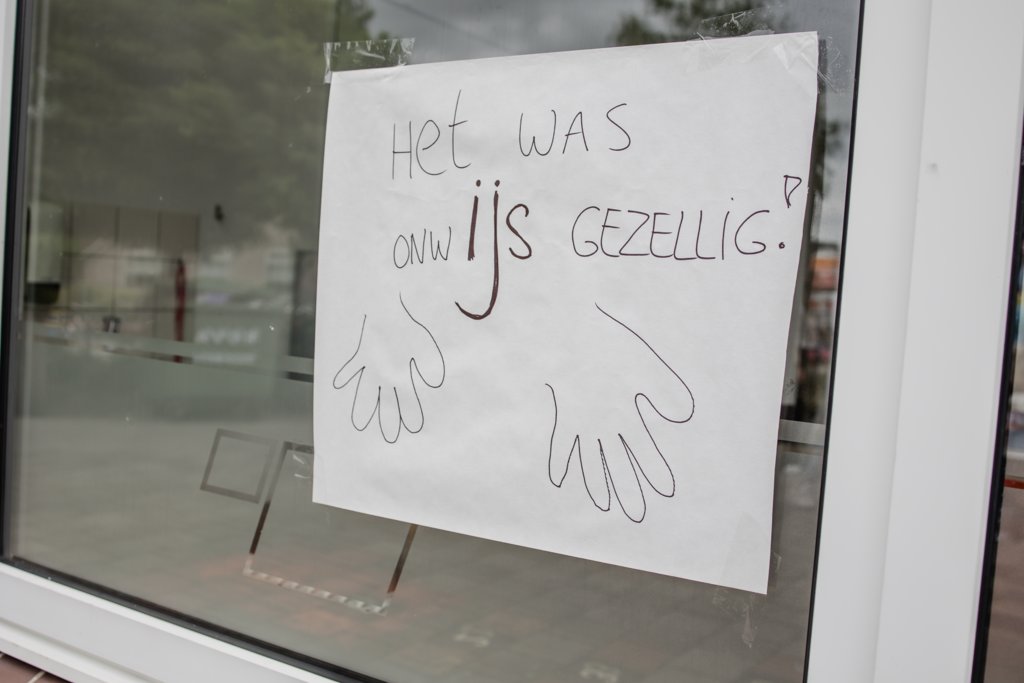 Het WAS
ONWijs GEZELLIG!